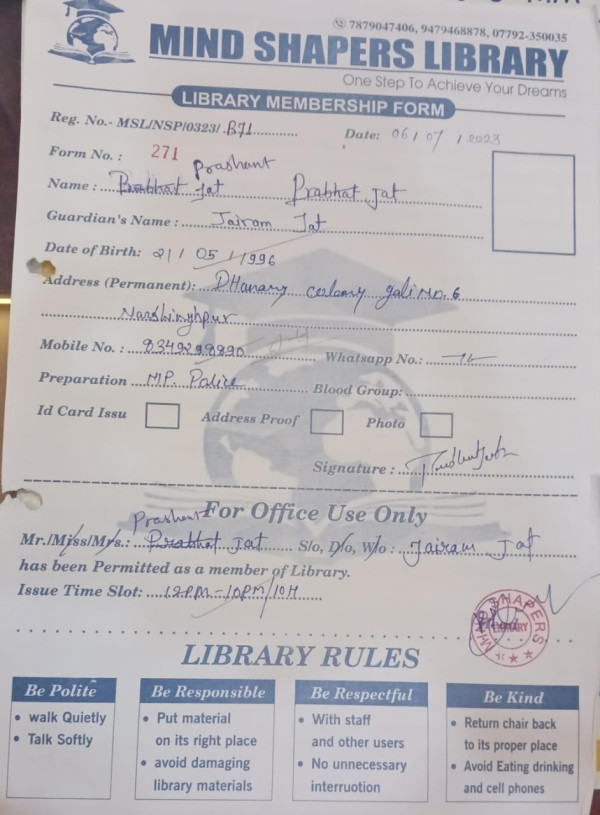 7879047406, 9479468878, 07792-350035
MIND SHAPERS LIBRARY
One Step To Achieve Your Dreams
LIBRARY MEMBERSHIP FORM
Reg. No.- MSL/NSP/0323/. B71 Date: 06/07/2023
Form No. : 271 Prashant
Name : Prabhat Jat Prabhat Jat
Guardian's Name : Jairam Jat
Date of Birth: 21/05/1996
Address (Permanent): DHanary colony gali no. 6
Narshinghpur
Mobile No. : 8349298890 Whatsapp No.:
Preparation MP. Police Blood Group:
Id Card Issu Address Proof Photo
Signature :
For Office Use Only
Prashant
Mr./Miss/Mrs.: Prabhat Jat S/o, D/o, W/o : Jairam Jat
has been Permitted as a member of Library.
Issue Time Slot: 12PM-10PM/10H
MIND SHAPERS LIBRARY
LIBRARY RULES
Be Polite
• walk Quietly
• Talk Softly
Be Responsible
• Put material
on its right place
• avoid damaging
library materials
Be Respectful
• With staff
and other users
• No unnecessary
interruotion
Be Kind
• Return chair back
to its proper place
• Avoid Eating drinking
and cell phones